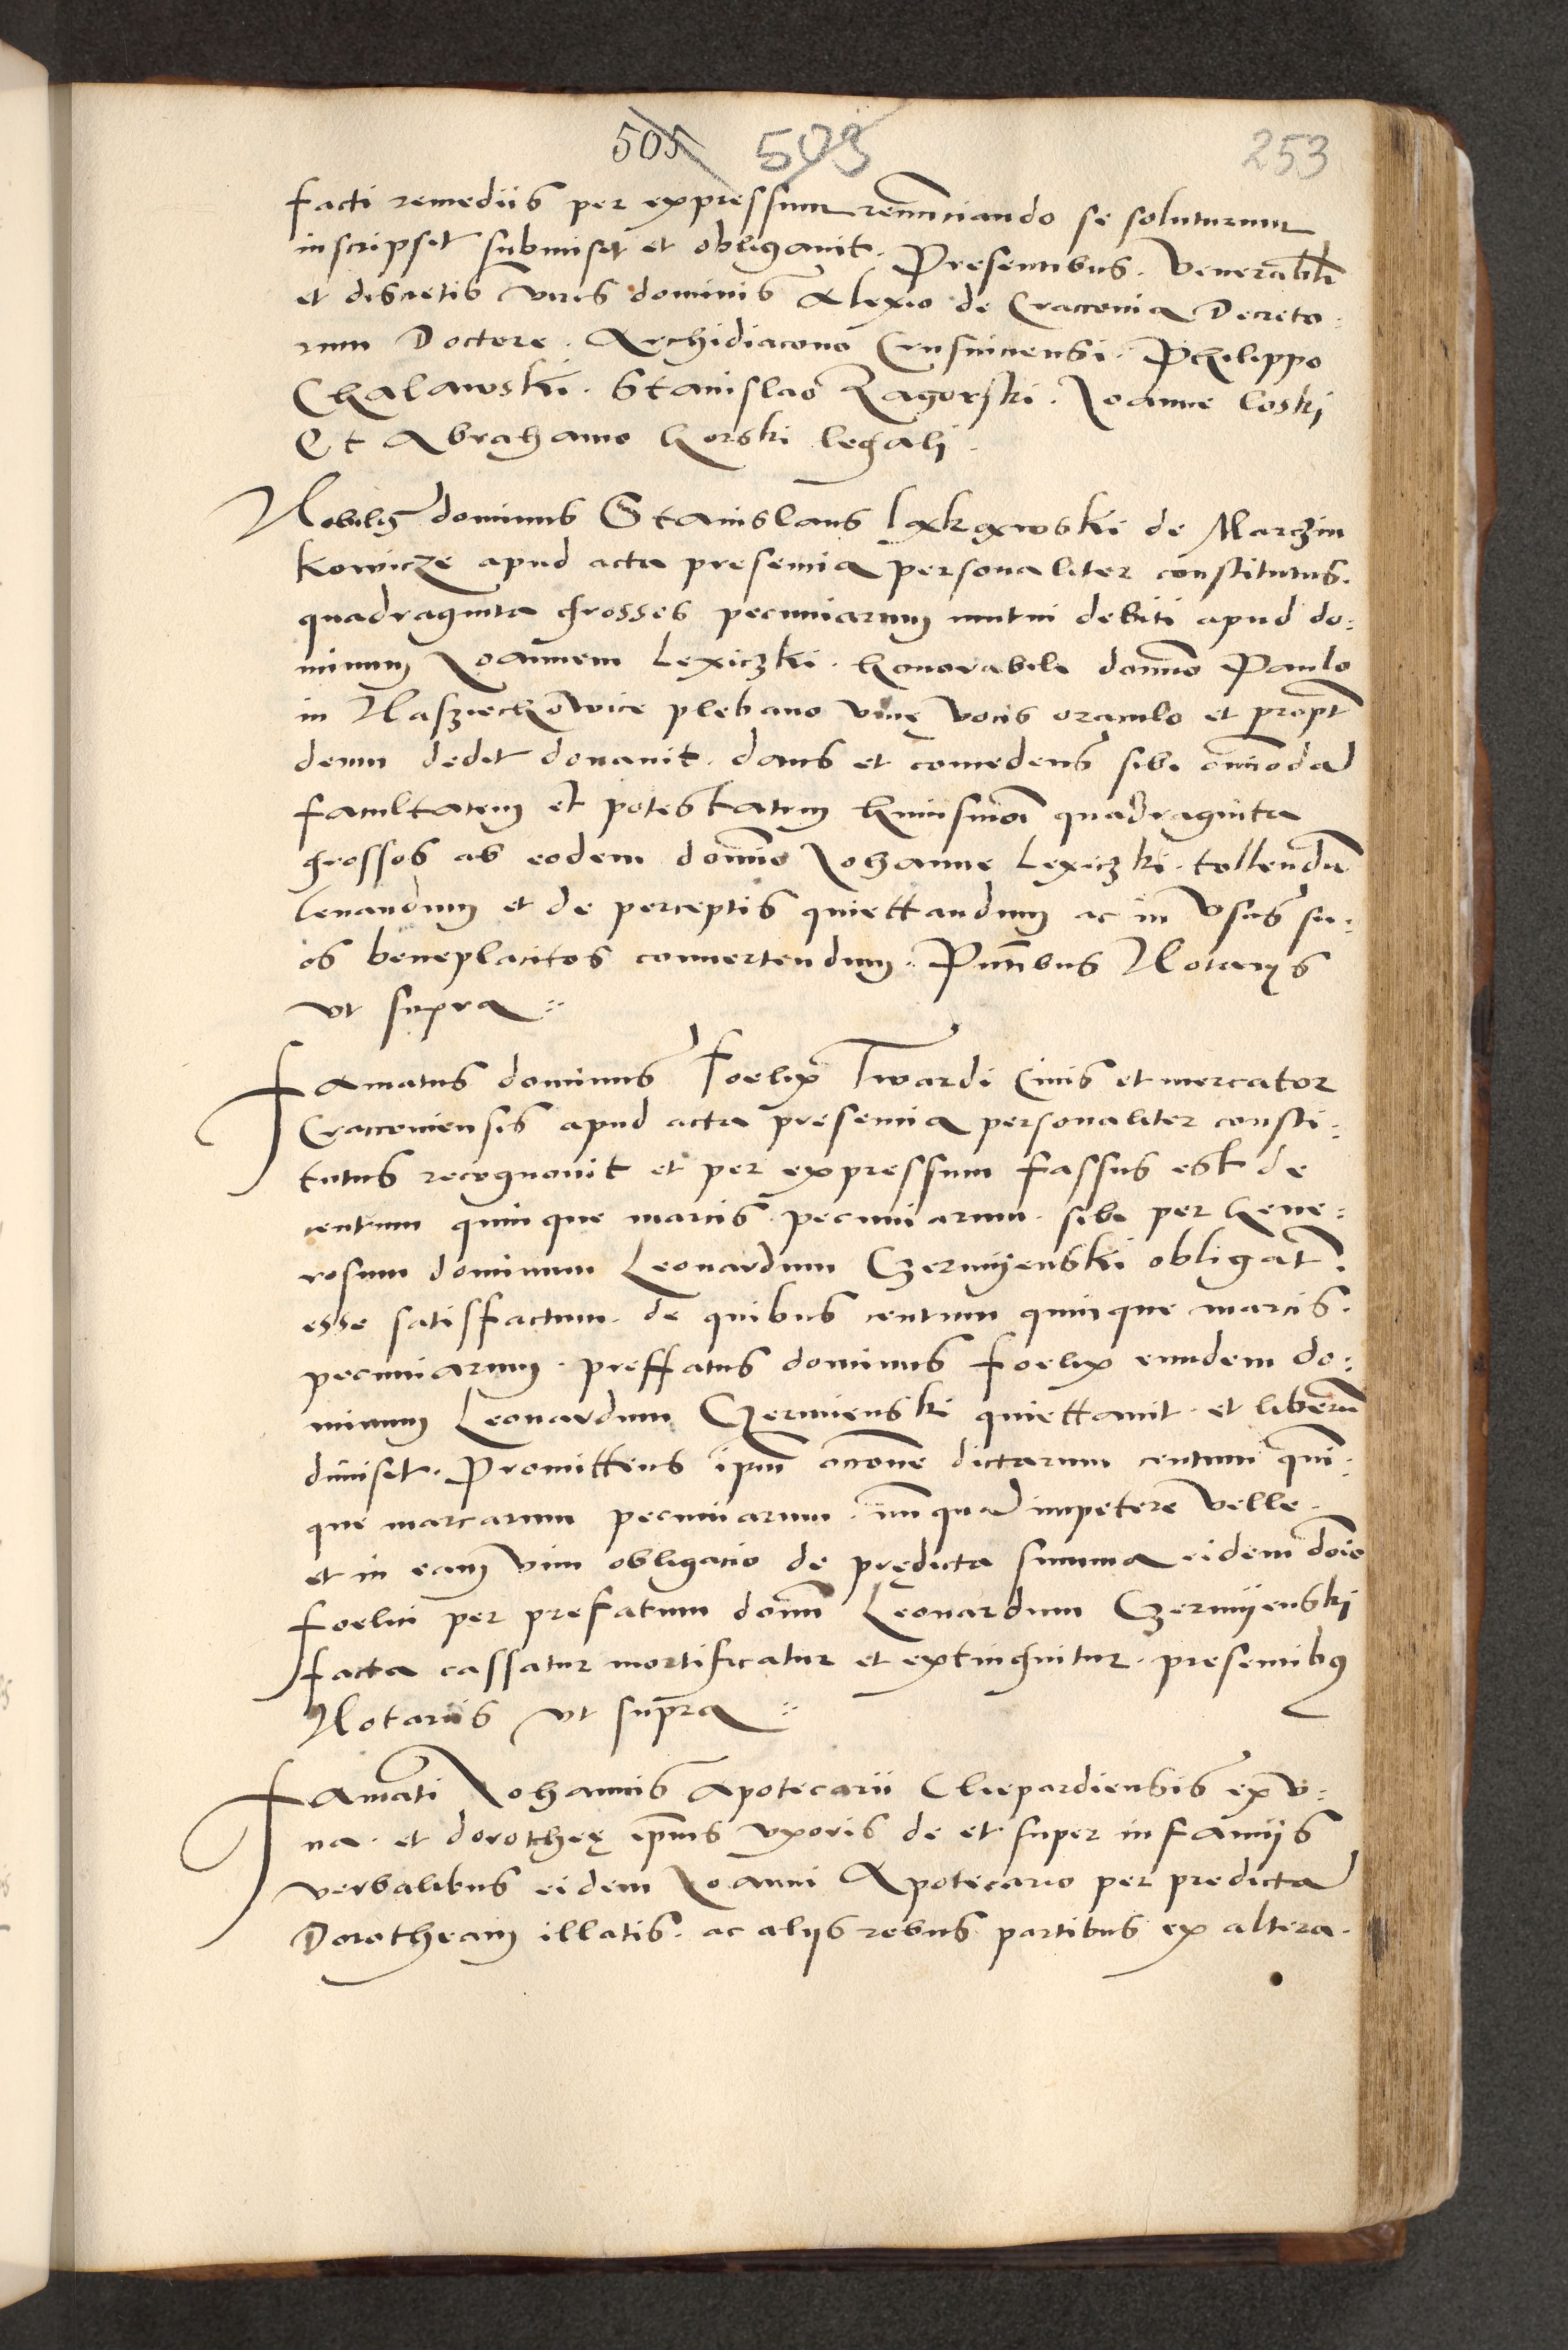 505 503 253
facti remediis per expressum renunciando se soluturum
inscripsit submisit et obligavit. Presentibus. Venerabili
et discretis viris dominis Alexio de Cracovia Decreto:
rum Doctore. Archidiacono Crusvicensi. Philippo
Chalawski. Stanislao Zagorski. Joanne Loski
Et Abrahamo Gorski legali.
Nobilis dominus Stanislaus de Marczin
kowicze apud acta presentia personaliter constitutus.
quadraginta grosses pecuniarum mutui debiti apud do:
minum Joannem Lexiczki. honorabili domno Paulo
in plebano vivę vocis oraculo et propt
deum dedit donavit. dans et concedens sibi omnoda
facultatem et potestatem huiusmoi quadraginta
grossos ab eodem domno Johanne Lexiczki. tollendi
levandum et de perceptis quiettandum ac in Usus su:
os beneplacitos convertendum. Pntibus Notarijs
vt supra
Famatus dominus Foelix Twardi Civis et mercator
Cracoviensis apud acta presentia personaliter consti:
tutus recognovit et per expressum fassus est de
centum quinque marcis pecuniarum. sibi per Gene:
rosum dominum Leonardum Czermyenski obligat.
esse satisfactum. de quibus centum quinque marcis.
pecuniarum. preffatus dominus Foelix eundem do:
minum Leonardum Czermienski quiettavit et liberum
dimisit. Promittens ipm occone dictarum centum quin:
que marcarum pecuniarum. nunqua impetere velle.
et in eam vim obligacio de prędicta summa eidem domo
Foelici per prefatum domn Leonardum Czermyenski
facta cassatur mortificatur et extinguitur. presentibus
Notariis vt supra
Famati Johannis Apotecarii Cleparđiensis ex v:
na. et dorotheę ipius vxoris de et super infamijs
verbalibus eidem Joanni Apotecario per predicta
Dorotheam illatis. ac alijs rebus partibus ex altera.